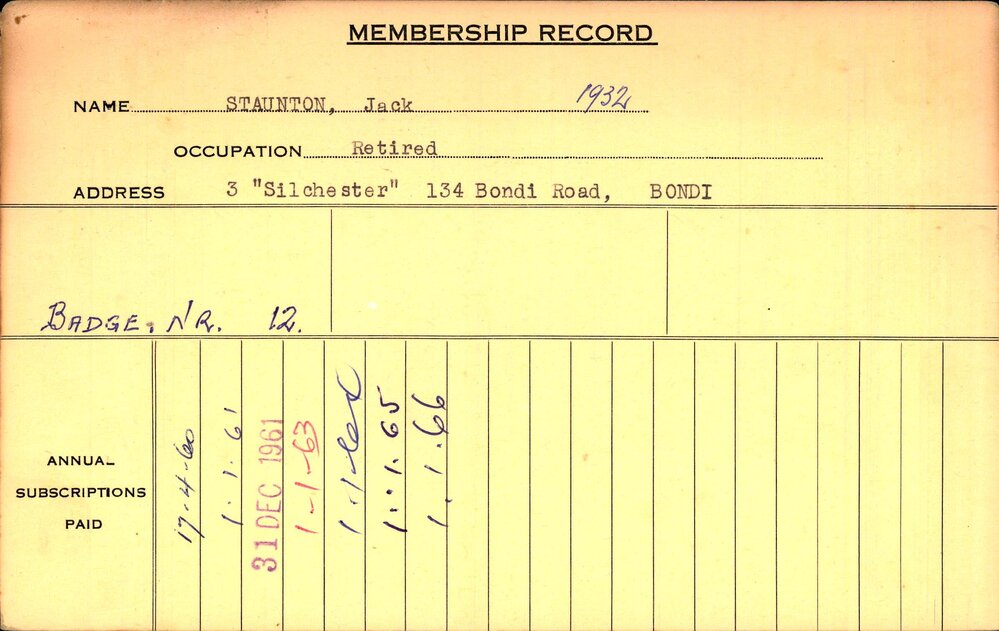 MEMBERSHIP RECORD
NAME STAUNTON, Jack 1932
OCCUPATION Retired
ADDRESS 3 "Silchester" 134 Bondi Road, BONDI
BADGE. NR. 12.
ANNUAL
SUBSCRIPTIONS
PAID
17-4-60
1.1.61
31 DEC 1961
1-1-63
1.1.64
1.1.65
1.1.66